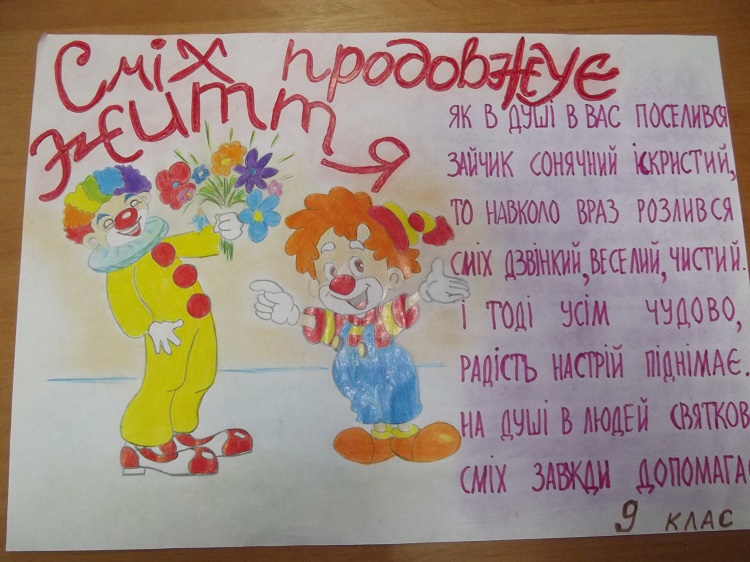 Сміх продовжує
життя
ЯК В ДУШІ В ВАС ПОСЕЛИВСЯ
ЗАЙЧИК СОНЯЧНИЙ ІСКРИСТИЙ,
ТО НАВКОЛО ВРАЗ РОЗЛИВСЯ
СМІХ ДЗВІНКИЙ, ВЕСЕЛИЙ, ЧИСТИЙ.
І ТОДІ УСІМ ЧУДОВО,
РАДІСТЬ НАСТРІЙ ПІДНІМАЄ.
НА ДУШІ В ЛЮДЕЙ СВЯТКОВ
СМІХ ЗАВЖДИ ДОПОМАГА
9 КЛАС